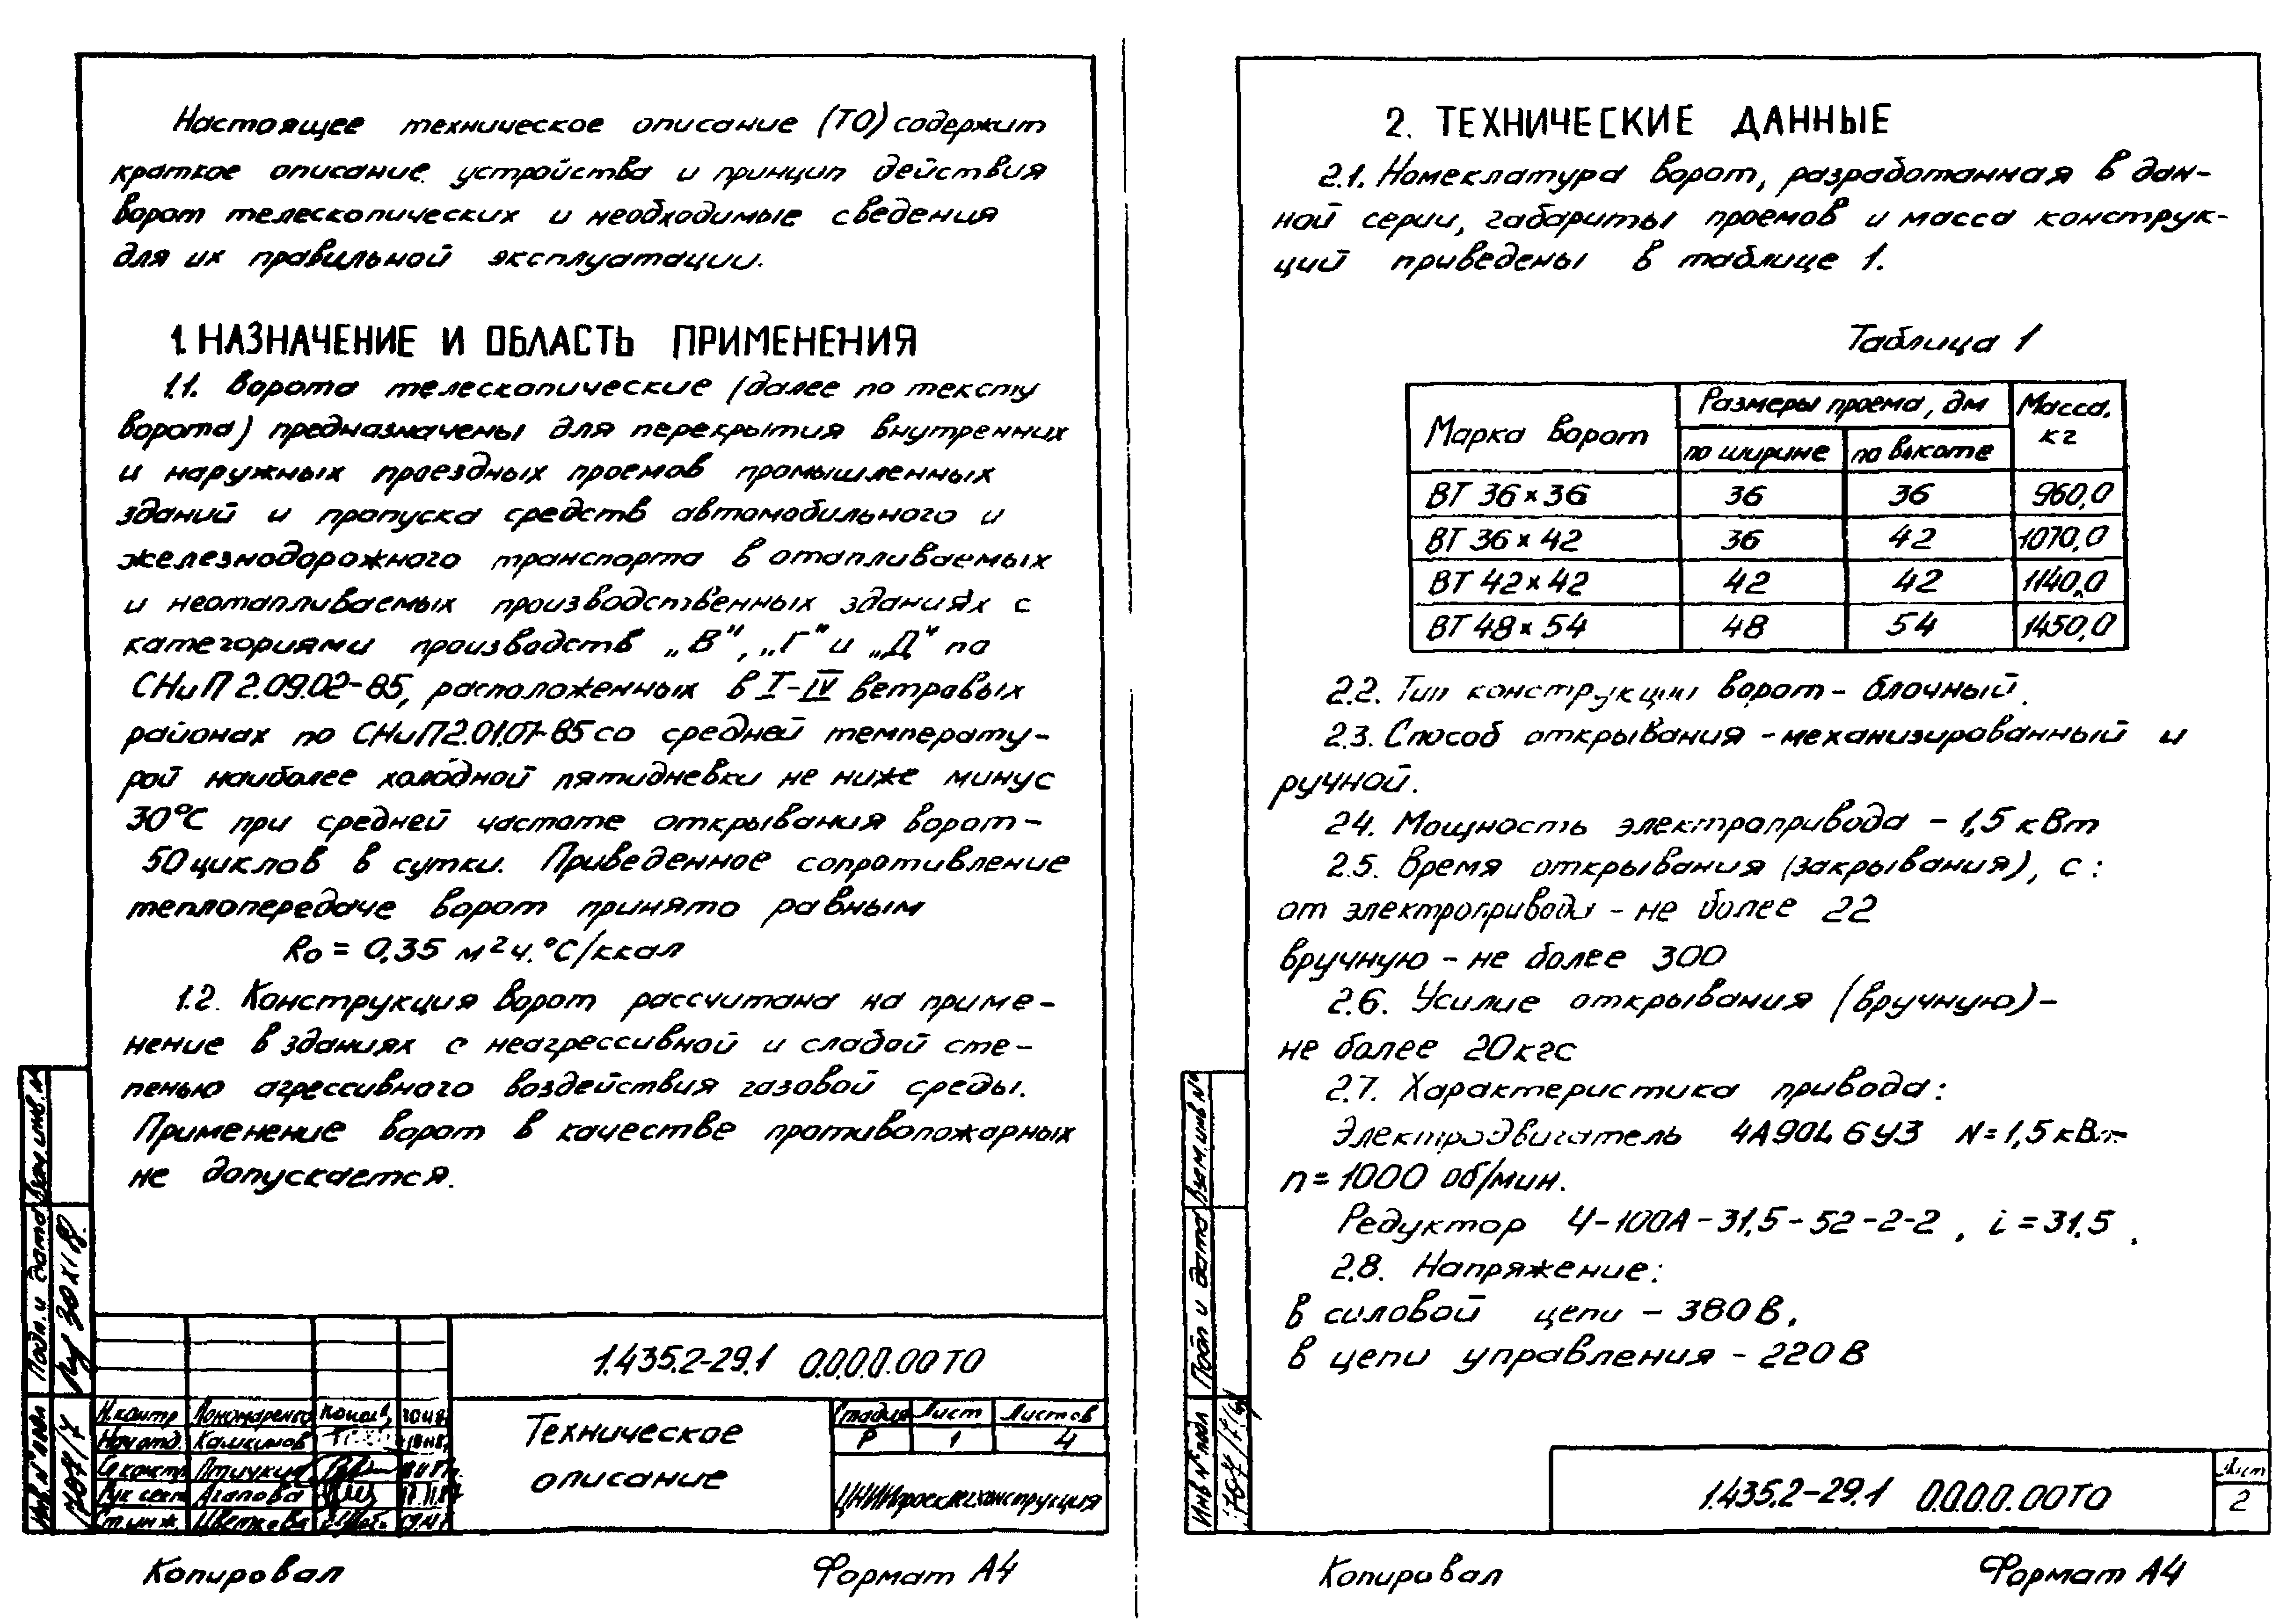 Настоящее техническое описание (ТО) содержит
краткое описание устройства и принцип действия
ворот телескопических и необходимые сведения
для их правильной эксплуатации.
1. НАЗНАЧЕНИЕ И ОБЛАСТЬ ПРИМЕНЕНИЯ
1.1. Ворота телескопические (далее по тексту
ворота) предназначены для перекрытия внутренних
и наружных проездных проемов промышленных
зданий и пропуска средств автомобильного и
железнодорожного транспорта в отапливаемых
и неотапливаемых производственных зданиях с
категориями производств „В", „Г" и „Д" по
СНиП 2.09.02-85, расположенных в I-IV ветровых
районах по СНиП 2.01.07-85 со средней температу-
рой наиболее холодной пятидневки не ниже минус
30°С при средней частоте открывания ворот-
50 циклов в сутки. Приведенное сопротивление
теплопередаче ворот принято равным
Rо = 0,35 м²ч.°С/ккал
1.2. Конструкция ворот рассчитана на приме-
нение в зданиях с неагрессивной и слабой сте-
пенью агрессивного воздействия газовой среды.
Применение ворот в качестве противопожарных
не допускается.
Взам. инв. №
Подп. и дата
Инв № подл
1704/7
1.435.2-29.1 0.0.0.0.00ТО
Н.контр Пономаренко
Нач отд. Каликинов
Гл констр Птичкин
Рук сект Агапова
Ст инж. Цветкова
Техническое
описание
Стадия Лист Листов
Р 1 4
ЦНИИпроектлегконструкция
Копировал Формат А4
2. ТЕХНИЧЕСКИЕ ДАННЫЕ
2.1. Номеклатура ворот, разработанная в дан-
ной серии, габариты проемов и масса конструк-
ций приведены в таблице 1.
Таблица 1
Марка ворот Размеры проема, дм Масса, кг
по ширине по высоте
ВТ 36×36 36 36 960,0
ВТ 36×42 36 42 1070,0
ВТ 42×42 42 42 1140,0
ВТ 48×54 48 54 1450,0
2.2. Тип конструкции ворот - блочный.
2.3. Способ открывания - механизированный и
ручной.
2.4. Мощность электропривода - 1,5 кВт
2.5. Время открывания (закрывания), с:
от электропривода - не более 22
вручную - не более 300
2.6. Усилие открывания (вручную)-
не более 20 кгс
2.7. Характеристика привода:
Электродвигатель 4А90L6У3 N=1,5 кВт
n=1000 об/мин.
Редуктор Ч-100А-31,5-52-2-2, i=31,5.
2.8. Напряжение:
в силовой цепи - 380 В,
в цепи управления - 220 В
Взам. инв №
Подп и дата
Инв № подл
1704/7
1.435.2-29.1 0.0.0.0.00ТО
Лист
2
Копировал Формат А4